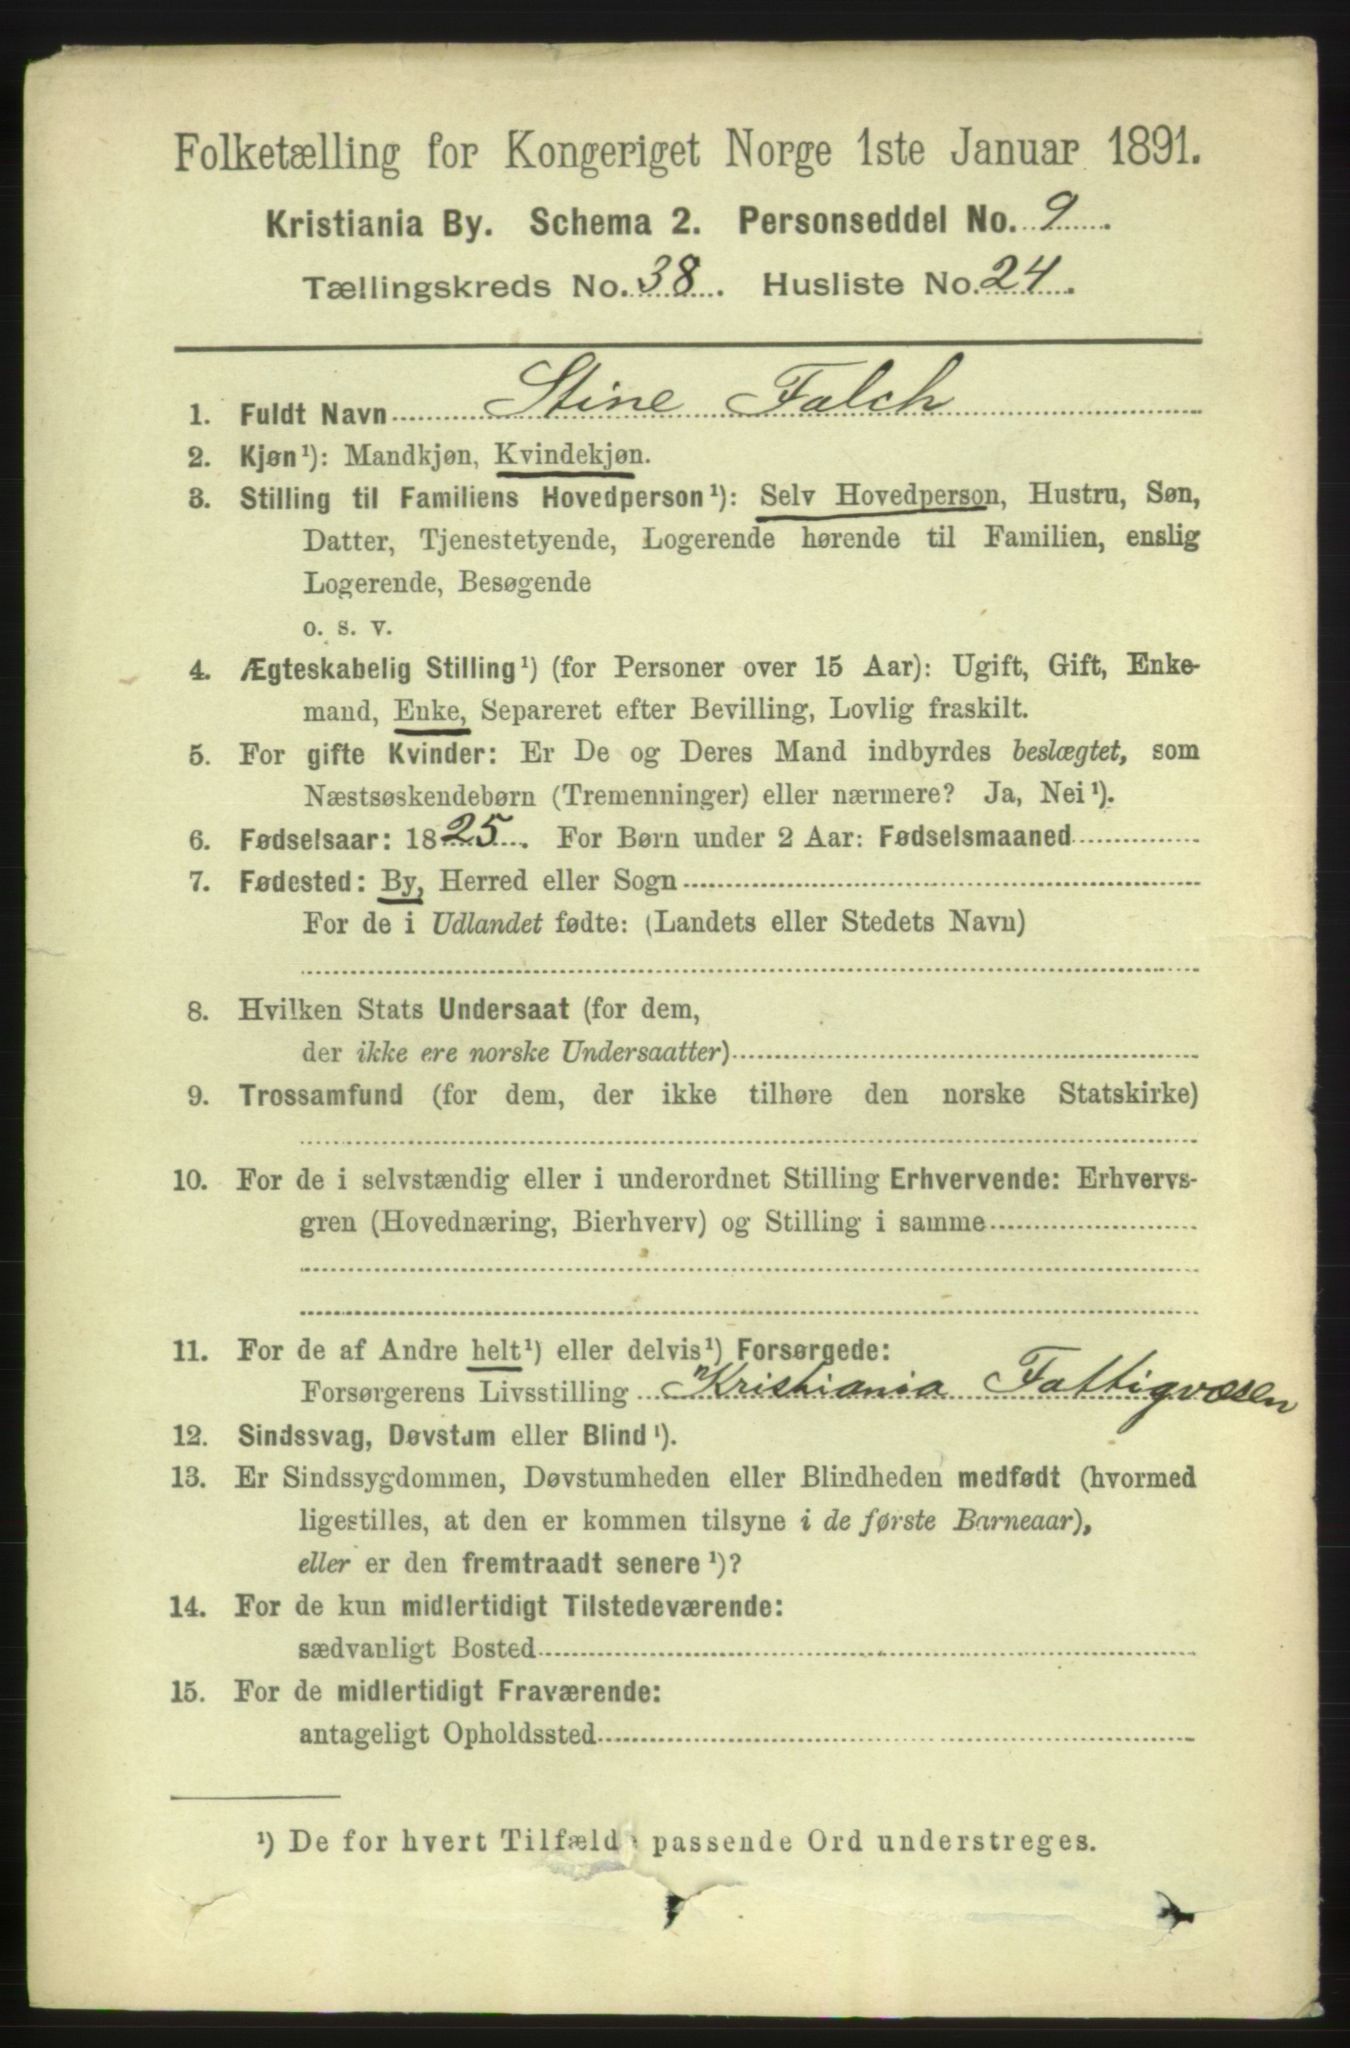 Folketælling for Kongeriget Norge 1ste Januar 1891.
Kristiania By. Schema 2. Personseddel No. 9
Tællingskreds No. 38. Husliste No. 24.
1. Fuldt Navn Stine Falch
2. Kjøn¹): Mandkjøn, Kvindekjøn.
3. Stilling til Familiens Hovedperson¹): Selv Hovedperson, Hustru, Søn,
Datter, Tjenestetyende, Logerende hørende til Familien, enslig
Logerende, Besøgende
o. s. v.
4. Ægteskabelig Stilling¹) (for Personer over 15 Aar): Ugift, Gift, Enke-
mand, Enke, Separeret efter Bevilling, Lovlig fraskilt.
5. For gifte Kvinder: Er De og Deres Mand indbyrdes beslægtet, som
Næstsøskendebørn (Tremenninger) eller nærmere? Ja, Nei¹).
6. Fødselsaar: 1825. For Børn under 2 Aar: Fødselsmaaned
7. Fødested: By, Herred eller Sogn
For de i Udlandet fødte: (Landets eller Stedets Navn)
8. Hvilken Stats Undersaat (for dem,
der ikke ere norske Undersaatter)
9. Trossamfund (for dem, der ikke tilhøre den norske Statskirke)
10. For de i selvstændig eller i underordnet Stilling Erhvervende: Erhvervs-
gren (Hovednæring, Bierhverv) og Stilling i samme
11. For de af Andre helt¹) eller delvis¹) Forsørgede:
Forsørgerens Livsstilling Kristiania Fattigvæsen
12. Sindssvag, Døvstum eller Blind¹).
13. Er Sindssygdommen, Døvstumheden eller Blindheden medfødt (hvormed
ligestilles, at den er kommen tilsyne i de første Barneaar),
eller er den fremtraadt senere¹)?
14. For de kun midlertidigt Tilstedeværende:
sædvanligt Bosted
15. For de midlertidigt Fraværende:
antageligt Opholdssted
¹) De for hvert Tilfælde passende Ord understreges.